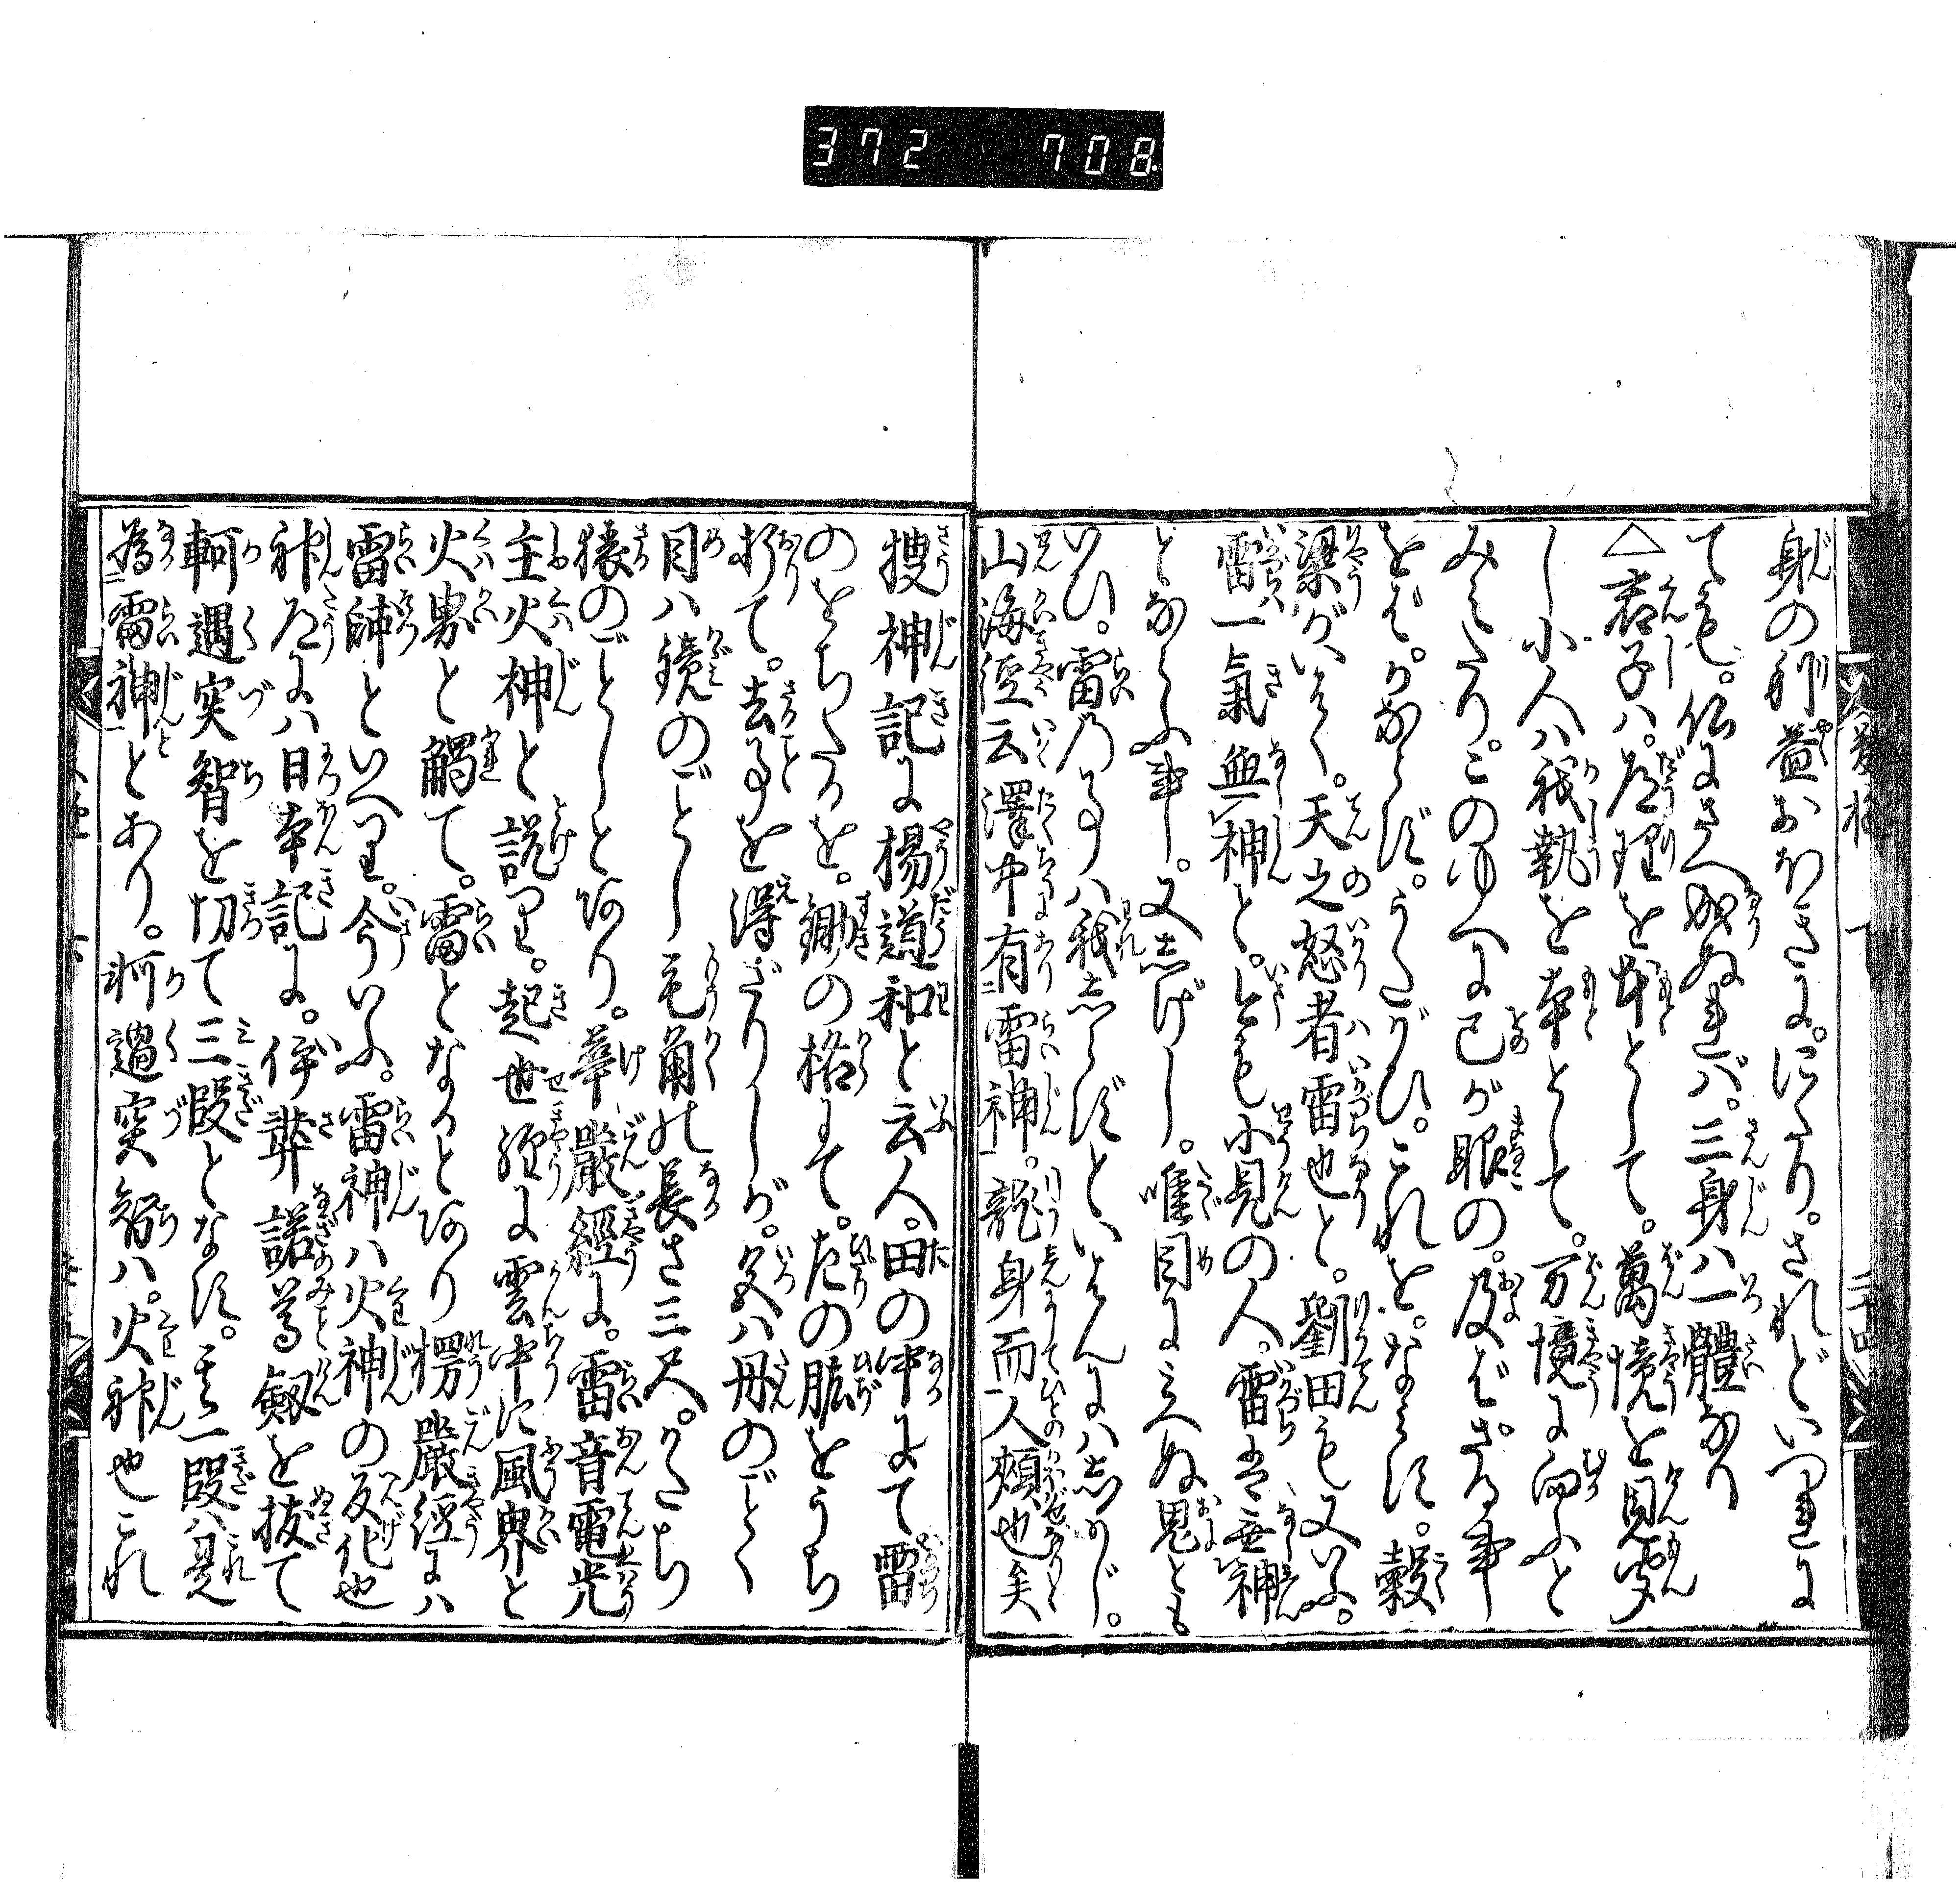 372 708
身の利益おほきに。にたり。されどいつれに
ても。仏にさへ成ぬれバ。三身ハ一體なり
△君子ハ。道理を本として。萬境を見聞
し小人ハ我執を本として。万境に向ふと
みえたり。このゆへに己が眼の。及ばざる事
をば。かならず。うたがひ。これを。なみす。穀
梁がいはく。天之怒者雷也と。劉田も又いふ。
雷一氣無神と。今も小見の人。雷者無神
となふ事し。又志げし。唯目にみえぬ鬼とも
いひ。雷乃事ハ我志らずといはんにハ志かじ。
山海經云澤中有雷神。龍身而人頬也矣
捜神記に楊道和と云人。田の中にて雷
のをちたるを。鋤の柄にて。左の肱をうち
折て。去事を得ざりしが。色ハ丹のごとく
目ハ鏡のごとし毛角の長さ三尺。かたち
猿のごとしとあり。華嚴經に。雷音電光
主火神と説り。起世經に雲中に風界と
火界と觸て。雷となるとあり楞嚴經にハ
雷師といへり。今いふ。雷神ハ火神の反化也
神道にハ日本記に。伊弉諾尊劔を抜て
軻遇突智を切て三段となす。其一段ハ是
為雷神とあり。軻遇突智ハ。火神也これ